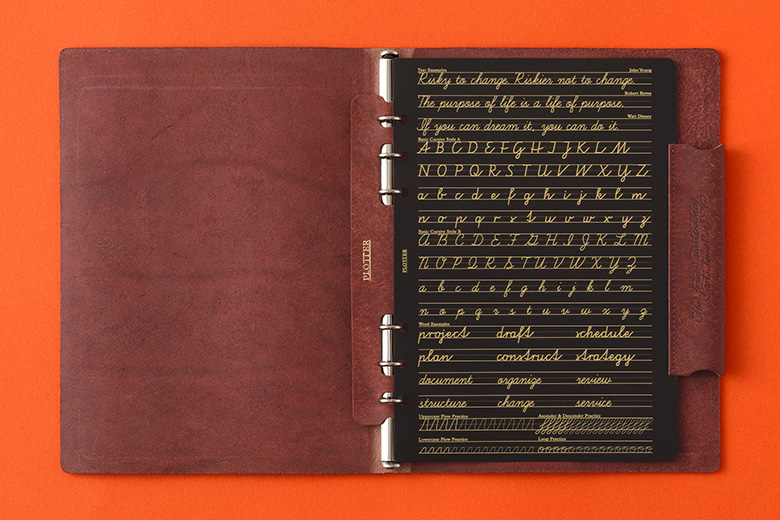 Text Examples John Young
Risky to change. Riskier not to change.
Robert Byrne
The purpose of life is a life of purpose.
Walt Disney
If you can dream it, you can do it.
Basic Cursive Style A
A B C D E F G H I J K L M
N O P Q R S T U V W X Y Z
a b c d e f g h i j k l m
n o p q r s t u v w x y z
Basic Cursive Style B
A B C D E F G H I J K L M
N O P Q R S T U V W X Y Z
a b c d e f g h i j k l m
n o p q r s t u v w x y z
Word Examples
project draft schedule
plan construct strategy
document organize review
structure change service
Uppercase Flow Practice Ascender & Descender Practice
Lowercase Flow Practice Loop Practice
PLOTTER
PLOTTER